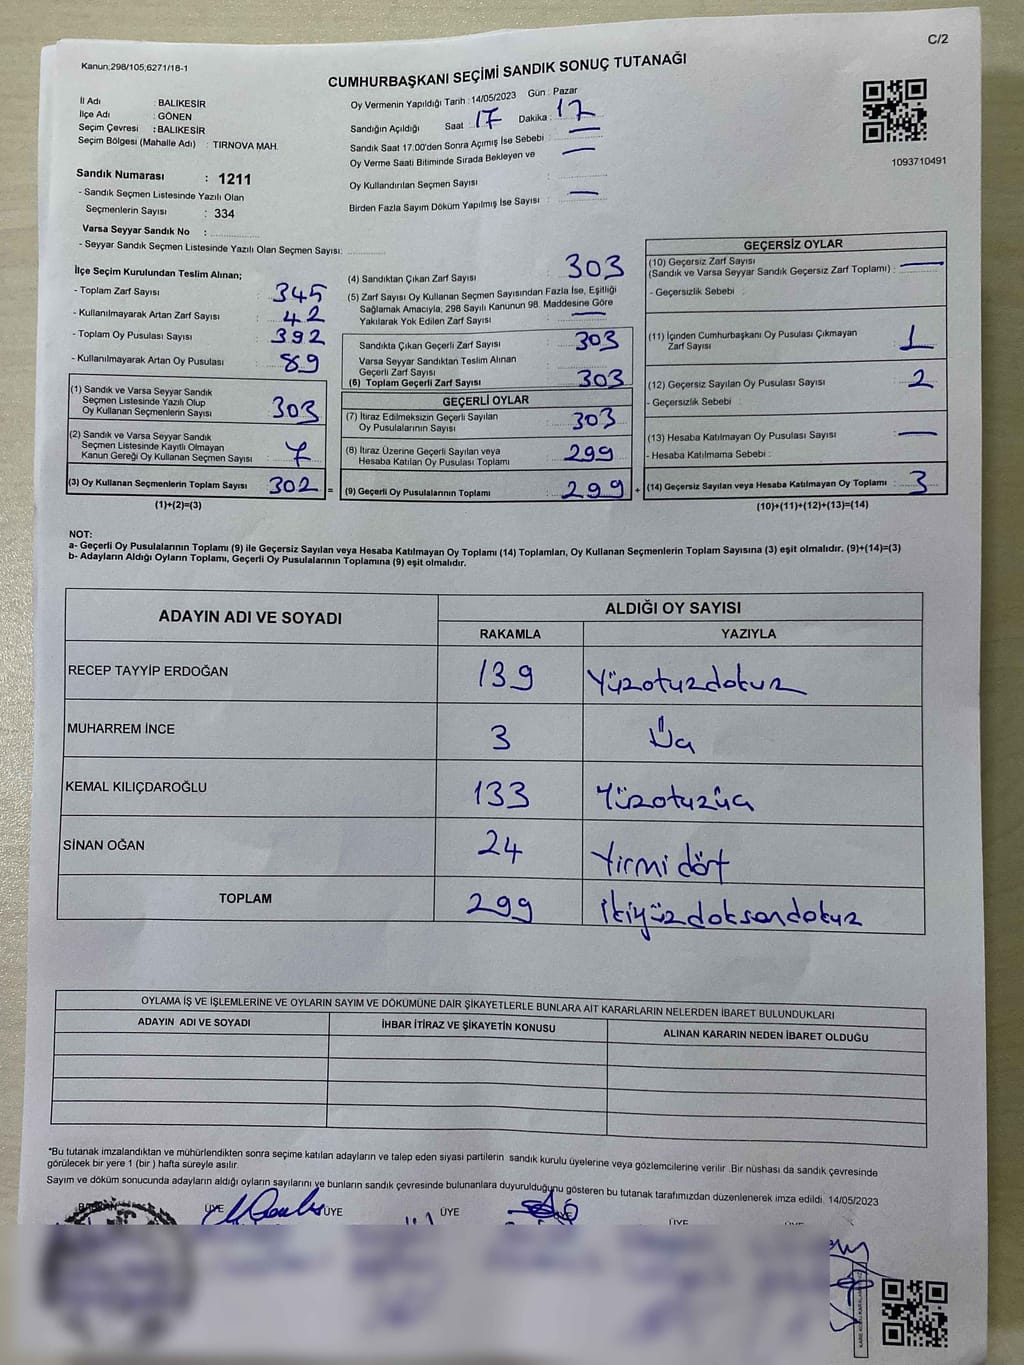 C/2
Kanun;298/105,6271/18-1
CUMHURBAŞKANI SEÇİMİ SANDIK SONUÇ TUTANAĞI
İl Adı : BALIKESİR
İlçe Adı : GÖNEN
Seçim Çevresi : BALIKESİR
Seçim Bölgesi (Mahalle Adı) : TIRNOVA MAH.
Sandık Numarası : 1211
- Sandık Seçmen Listesinde Yazılı Olan
Seçmenlerin Sayısı : 334
Varsa Seyyar Sandık No :
- Seyyar Sandık Seçmen Listesinde Yazılı Olan Seçmen Sayısı:
Oy Vermenin Yapıldığı Tarih : 14/05/2023 Gün : Pazar
Sandığın Açıldığı Saat : 17 Dakika : 17
Sandık Saat 17.00'den Sonra Açımış İse Sebebi : —
Oy Verme Saati Bitiminde Sırada Bekleyen ve —
Oy Kullandırılan Seçmen Sayısı :
Birden Fazla Sayım Döküm Yapılmış İse Sayısı : —
1093710491
İlçe Seçim Kurulundan Teslim Alınan;
- Toplam Zarf Sayısı : 345
- Kullanılmayarak Artan Zarf Sayısı : 42
- Toplam Oy Pusulası Sayısı : 392
- Kullanılmayarak Artan Oy Pusulası : 89
(1) Sandık ve Varsa Seyyar Sandık
Seçmen Listesinde Yazılı Olup
Oy Kullanan Seçmenlerin Sayısı : 303
(2) Sandık ve Varsa Seyyar Sandık
Seçmen Listesinde Kayıtlı Olmayan
Kanun Gereği Oy Kullanan Seçmen Sayısı : 7
(3) Oy Kullanan Seçmenlerin Toplam Sayısı : 302 =
(1)+(2)=(3)
(4) Sandıktan Çıkan Zarf Sayısı : 303
(5) Zarf Sayısı Oy Kullanan Seçmen Sayısından Fazla İse, Eşitliği
Sağlamak Amacıyla, 298 Sayılı Kanunun 98. Maddesine Göre
Yakılarak Yok Edilen Zarf Sayısı : —
Sandıkta Çıkan Geçerli Zarf Sayısı : 303
Varsa Seyyar Sandıktan Teslim Alınan
Geçerli Zarf Sayısı :
(6) Toplam Geçerli Zarf Sayısı : 303
GEÇERLİ OYLAR
(7) İtiraz Edilmeksizin Geçerli Sayılan
Oy Pusulalarının Sayısı : 303
(8) İtiraz Üzerine Geçerli Sayılan veya
Hesaba Katılan Oy Pusulası Toplamı : 299
(9) Geçerli Oy Pusulalarının Toplamı : 299 +
GEÇERSİZ OYLAR
(10) Geçersiz Zarf Sayısı
(Sandık ve Varsa Seyyar Sandık Geçersiz Zarf Toplamı) : —
- Geçersizlik Sebebi :
(11) İçinden Cumhurbaşkanı Oy Pusulası Çıkmayan
Zarf Sayısı : 1
(12) Geçersiz Sayılan Oy Pusulası Sayısı : 2
- Geçersizlik Sebebi :
(13) Hesaba Katılmayan Oy Pusulası Sayısı : —
- Hesaba Katılmama Sebebi :
(14) Geçersiz Sayılan veya Hesaba Katılmayan Oy Toplamı : 3
(10)+(11)+(12)+(13)=(14)
NOT:
a- Geçerli Oy Pusulalarının Toplamı (9) ile Geçersiz Sayılan veya Hesaba Katılmayan Oy Toplamı (14) Toplamları, Oy Kullanan Seçmenlerin Toplam Sayısına (3) eşit olmalıdır. (9)+(14)=(3)
b- Adayların Aldığı Oyların Toplamı, Geçerli Oy Pusulalarının Toplamına (9) eşit olmalıdır.
ADAYIN ADI VE SOYADI ALDIĞI OY SAYISI
RAKAMLA YAZIYLA
RECEP TAYYİP ERDOĞAN 139 Yüzotuzdokuz
MUHARREM İNCE 3 Üç
KEMAL KILIÇDAROĞLU 133 Yüzotuzüç
SİNAN OĞAN 24 Yirmi dört
TOPLAM 299 İkiyüzdoksandokuz
OYLAMA İŞ VE İŞLEMLERİNE VE OYLARIN SAYIM VE DÖKÜMÜNE DAİR ŞİKAYETLERLE BUNLARA AİT KARARLARIN NELERDEN İBARET BULUNDUKLARI
ADAYIN ADI VE SOYADI İHBAR İTİRAZ VE ŞİKAYETİN KONUSU ALINAN KARARIN NEDEN İBARET OLDUĞU
*Bu tutanak imzalandıktan ve mühürlendikten sonra seçime katılan adayların ve talep eden siyasi partilerin sandık kurulu üyelerine veya gözlemcilerine verilir .Bir nüshası da sandık çevresinde
görülecek bir yere 1 (bir ) hafta süreyle asılır.
Sayım ve döküm sonucunda adayların aldığı oyların sayılarını ve bunların sandık çevresinde bulunanlara duyurulduğunu gösteren bu tutanak tarafımızdan düzenlenerek imza edildi. 14/05/2023
BAŞKAN ÜYE ÜYE ÜYE ÜYE ÜYE ÜYE